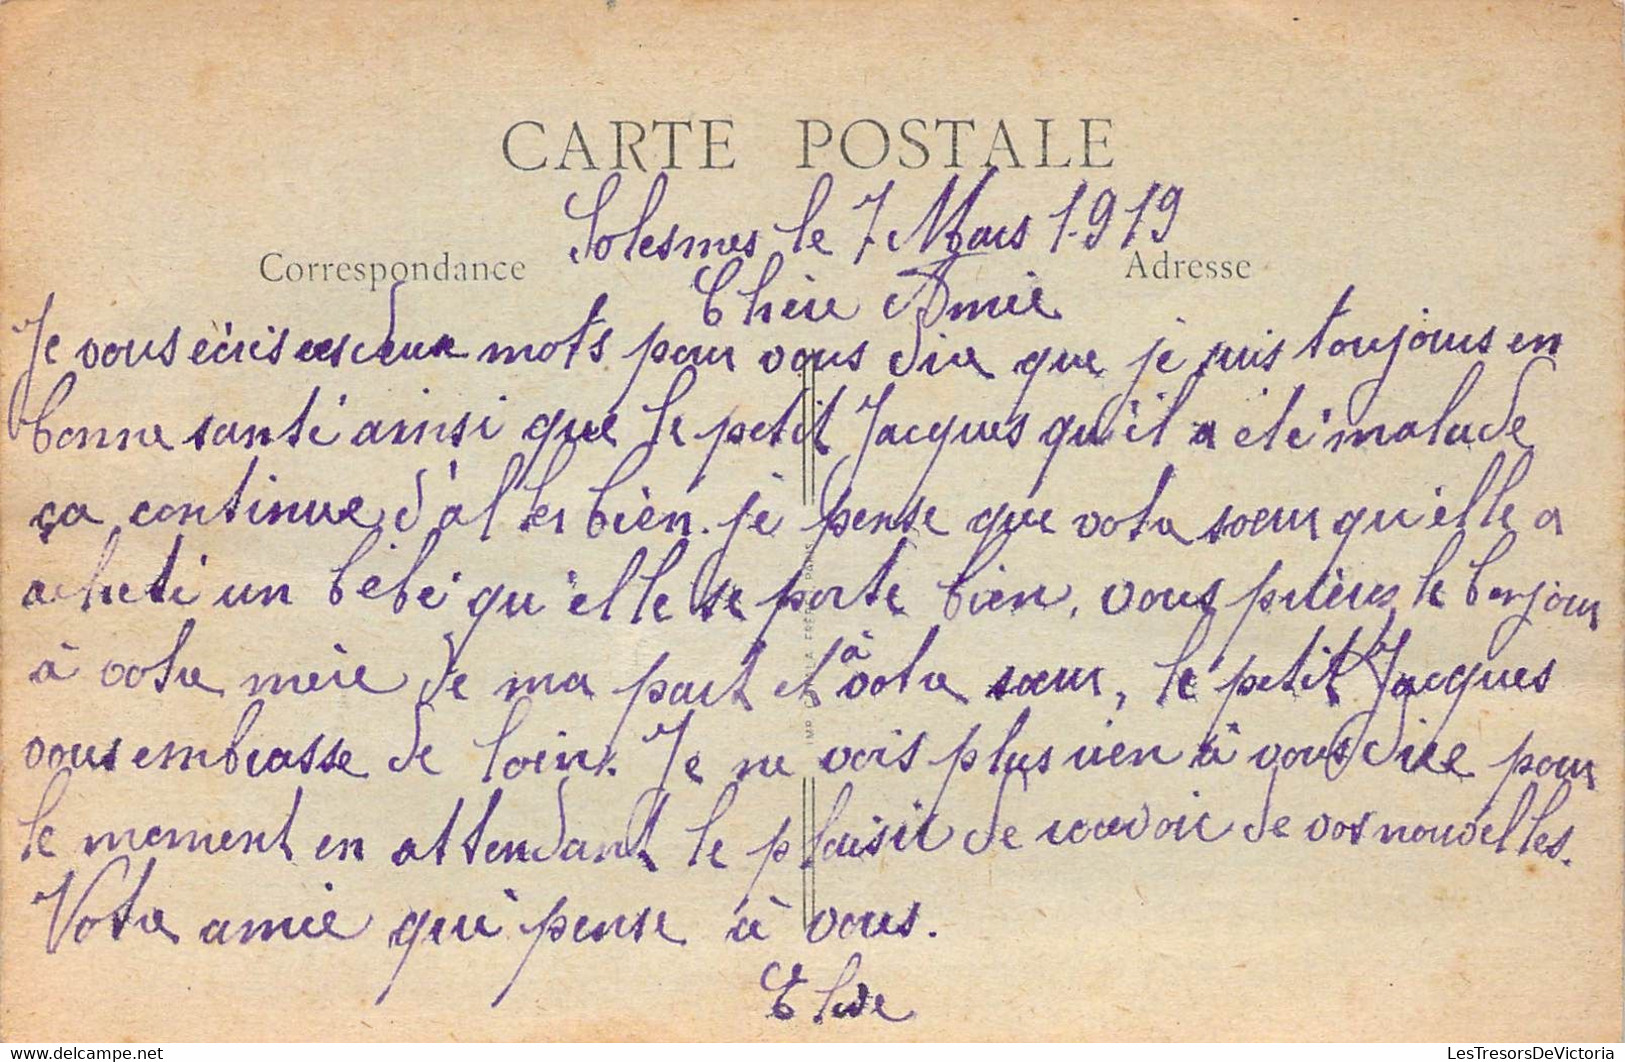 CARTE POSTALE
Solesmes le 7 Mars 1919
Correspondance
Adresse
Chère Amie
Je vous écris ces deux mots pour vous dire que je suis toujours en
bonne santé ainsi que le petit Jacques qu'il a été malade
ça continue d'aller bien. je pense que votre sœur qu'elle a
acheté un bébé qu'elle se porte bien, vous le bonjour
à votre mère de ma part et à votre sœur, le petit Jacques
vous embrasse de loin. Je ne vois plus rien à vous dire pour
le moment en attendant le plaisir de recevoir de vos nouvelles.
Votre amie qui pense à vous.
IMP PARIS
LesTresorsDeVictoria
www.delcampe.net